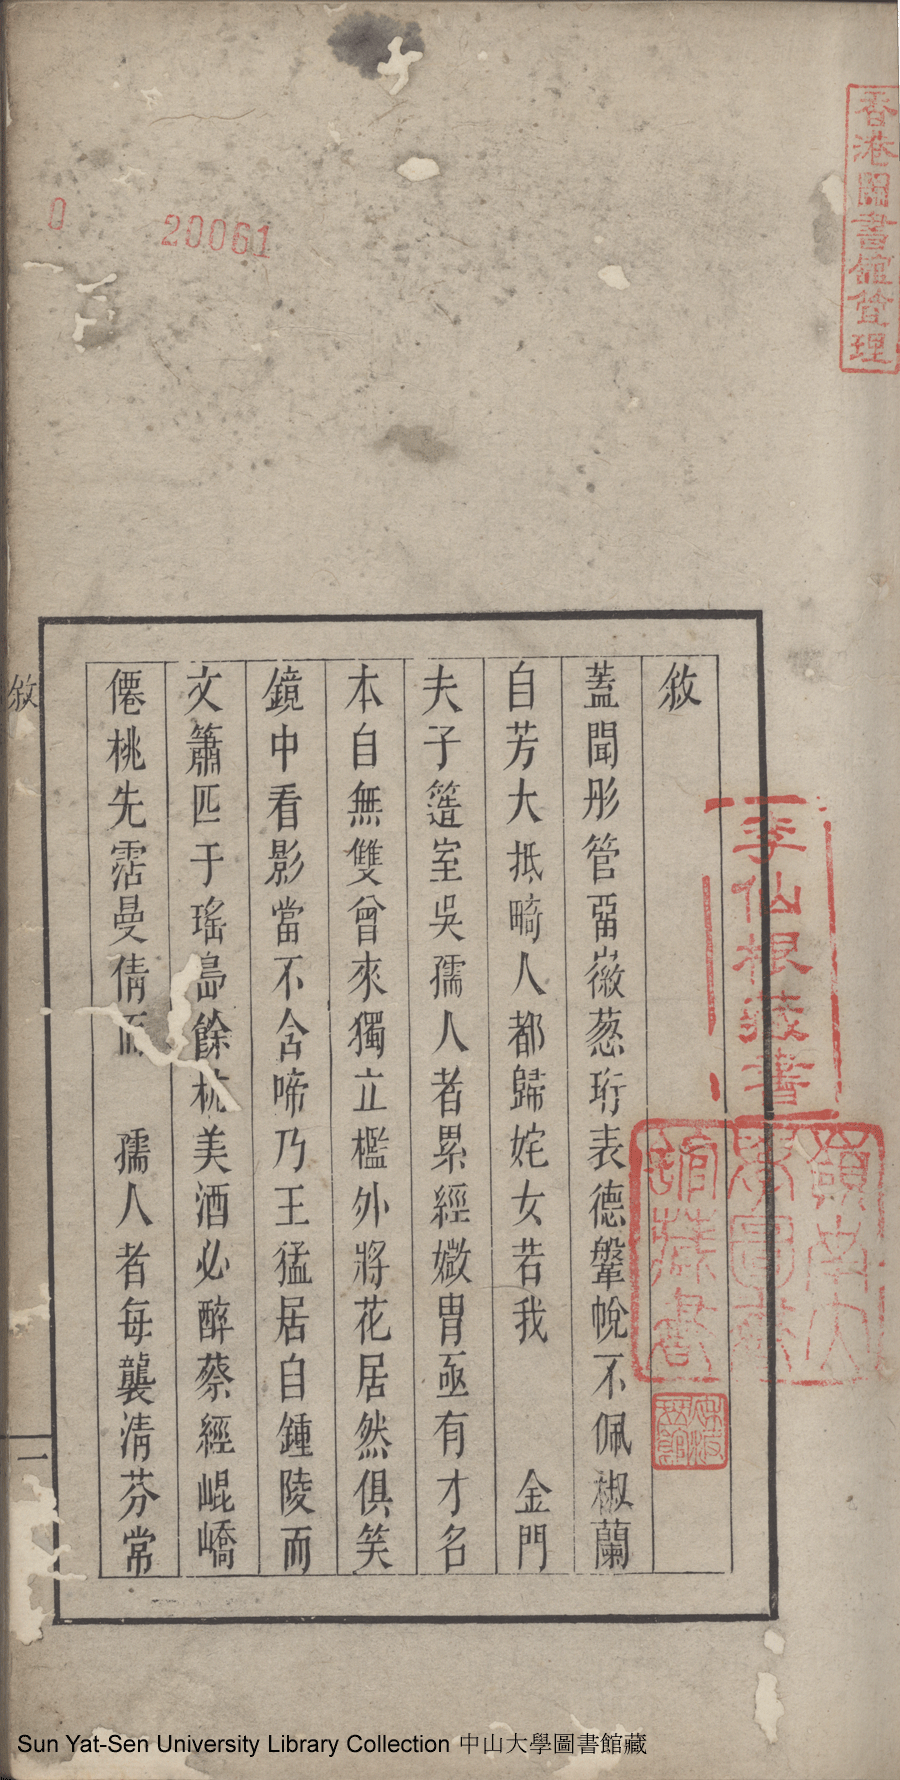 敘
蓋聞彤管畱嶶葱珩表德鞶帨不佩椒蘭
自芳大抵畸人都歸姹女若我　　金門
夫子簉室吳孺人者累經媺胄亟有才名
本自無雙曾來獨立檻外將花居然俱笑
鏡中看影當不含啼乃王猛居自鍾陵而
文簫匹于瑤島餘杭美酒必醉蔡經崐嶠
僊桃先霑曼倩而　孺人者每襲清芬常
敘
一
香港圖書館管理
0 20061
李仙根藏書
嶺南大學圖書館藏書
Sun Yat-Sen University Library Collection 中山大學圖書館藏